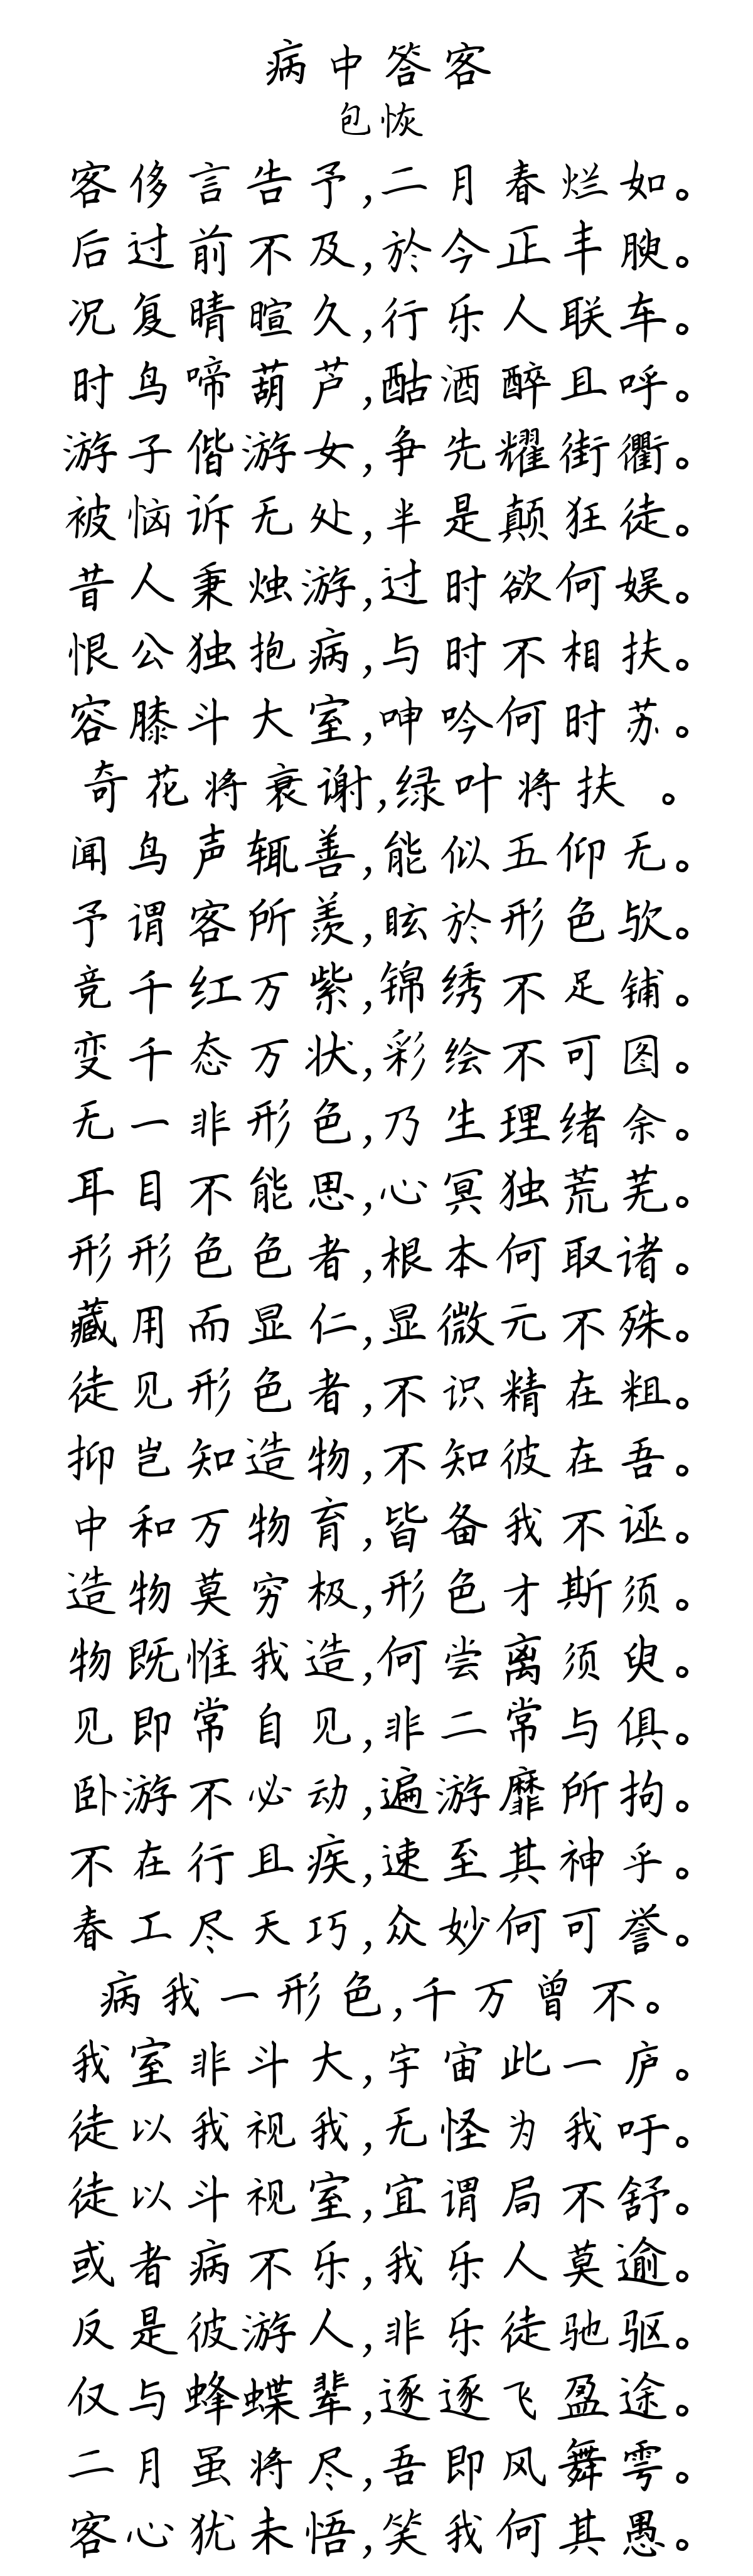 病中答客
包恢
客侈言告予,二月春烂如。
后过前不及,於今正丰腴。
况复晴暄久,行乐人联车。
时鸟啼葫芦,酤酒醉且呼。
游子偕游女,争先耀街衢。
被恼诉无处,半是颠狂徒。
昔人秉烛游,过时欲何娱。
恨公独抱病,与时不相扶。
容膝斗大室,呻吟何时苏。
奇花将衰谢,绿叶将扶 。
闻鸟声辄善,能似五仰无。
予谓客所羡,眩於形色欤。
竞千红万紫,锦绣不足铺。
变千态万状,彩绘不可图。
无一非形色,乃生理绪余。
耳目不能思,心冥独荒芜。
形形色色者,根本何取诸。
藏用而显仁,显微元不殊。
徒见形色者,不识精在粗。
抑岂知造物,不知彼在吾。
中和万物育,皆备我不诬。
造物莫穷极,形色才斯须。
物既惟我造,何尝离须臾。
见即常自见,非二常与俱。
卧游不必动,遍游靡所拘。
不在行且疾,速至其神乎。
春工尽天巧,众妙何可誉。
病我一形色,千万曾不。
我室非斗大,宇宙此一庐。
徒以我视我,无怪为我吁。
徒以斗视室,宜谓局不舒。
或者病不乐,我乐人莫逾。
反是彼游人,非乐徒驰驱。
仅与蜂蝶辈,逐逐飞盈途。
二月虽将尽,吾即风舞雩。
客心犹未悟,笑我何其愚。